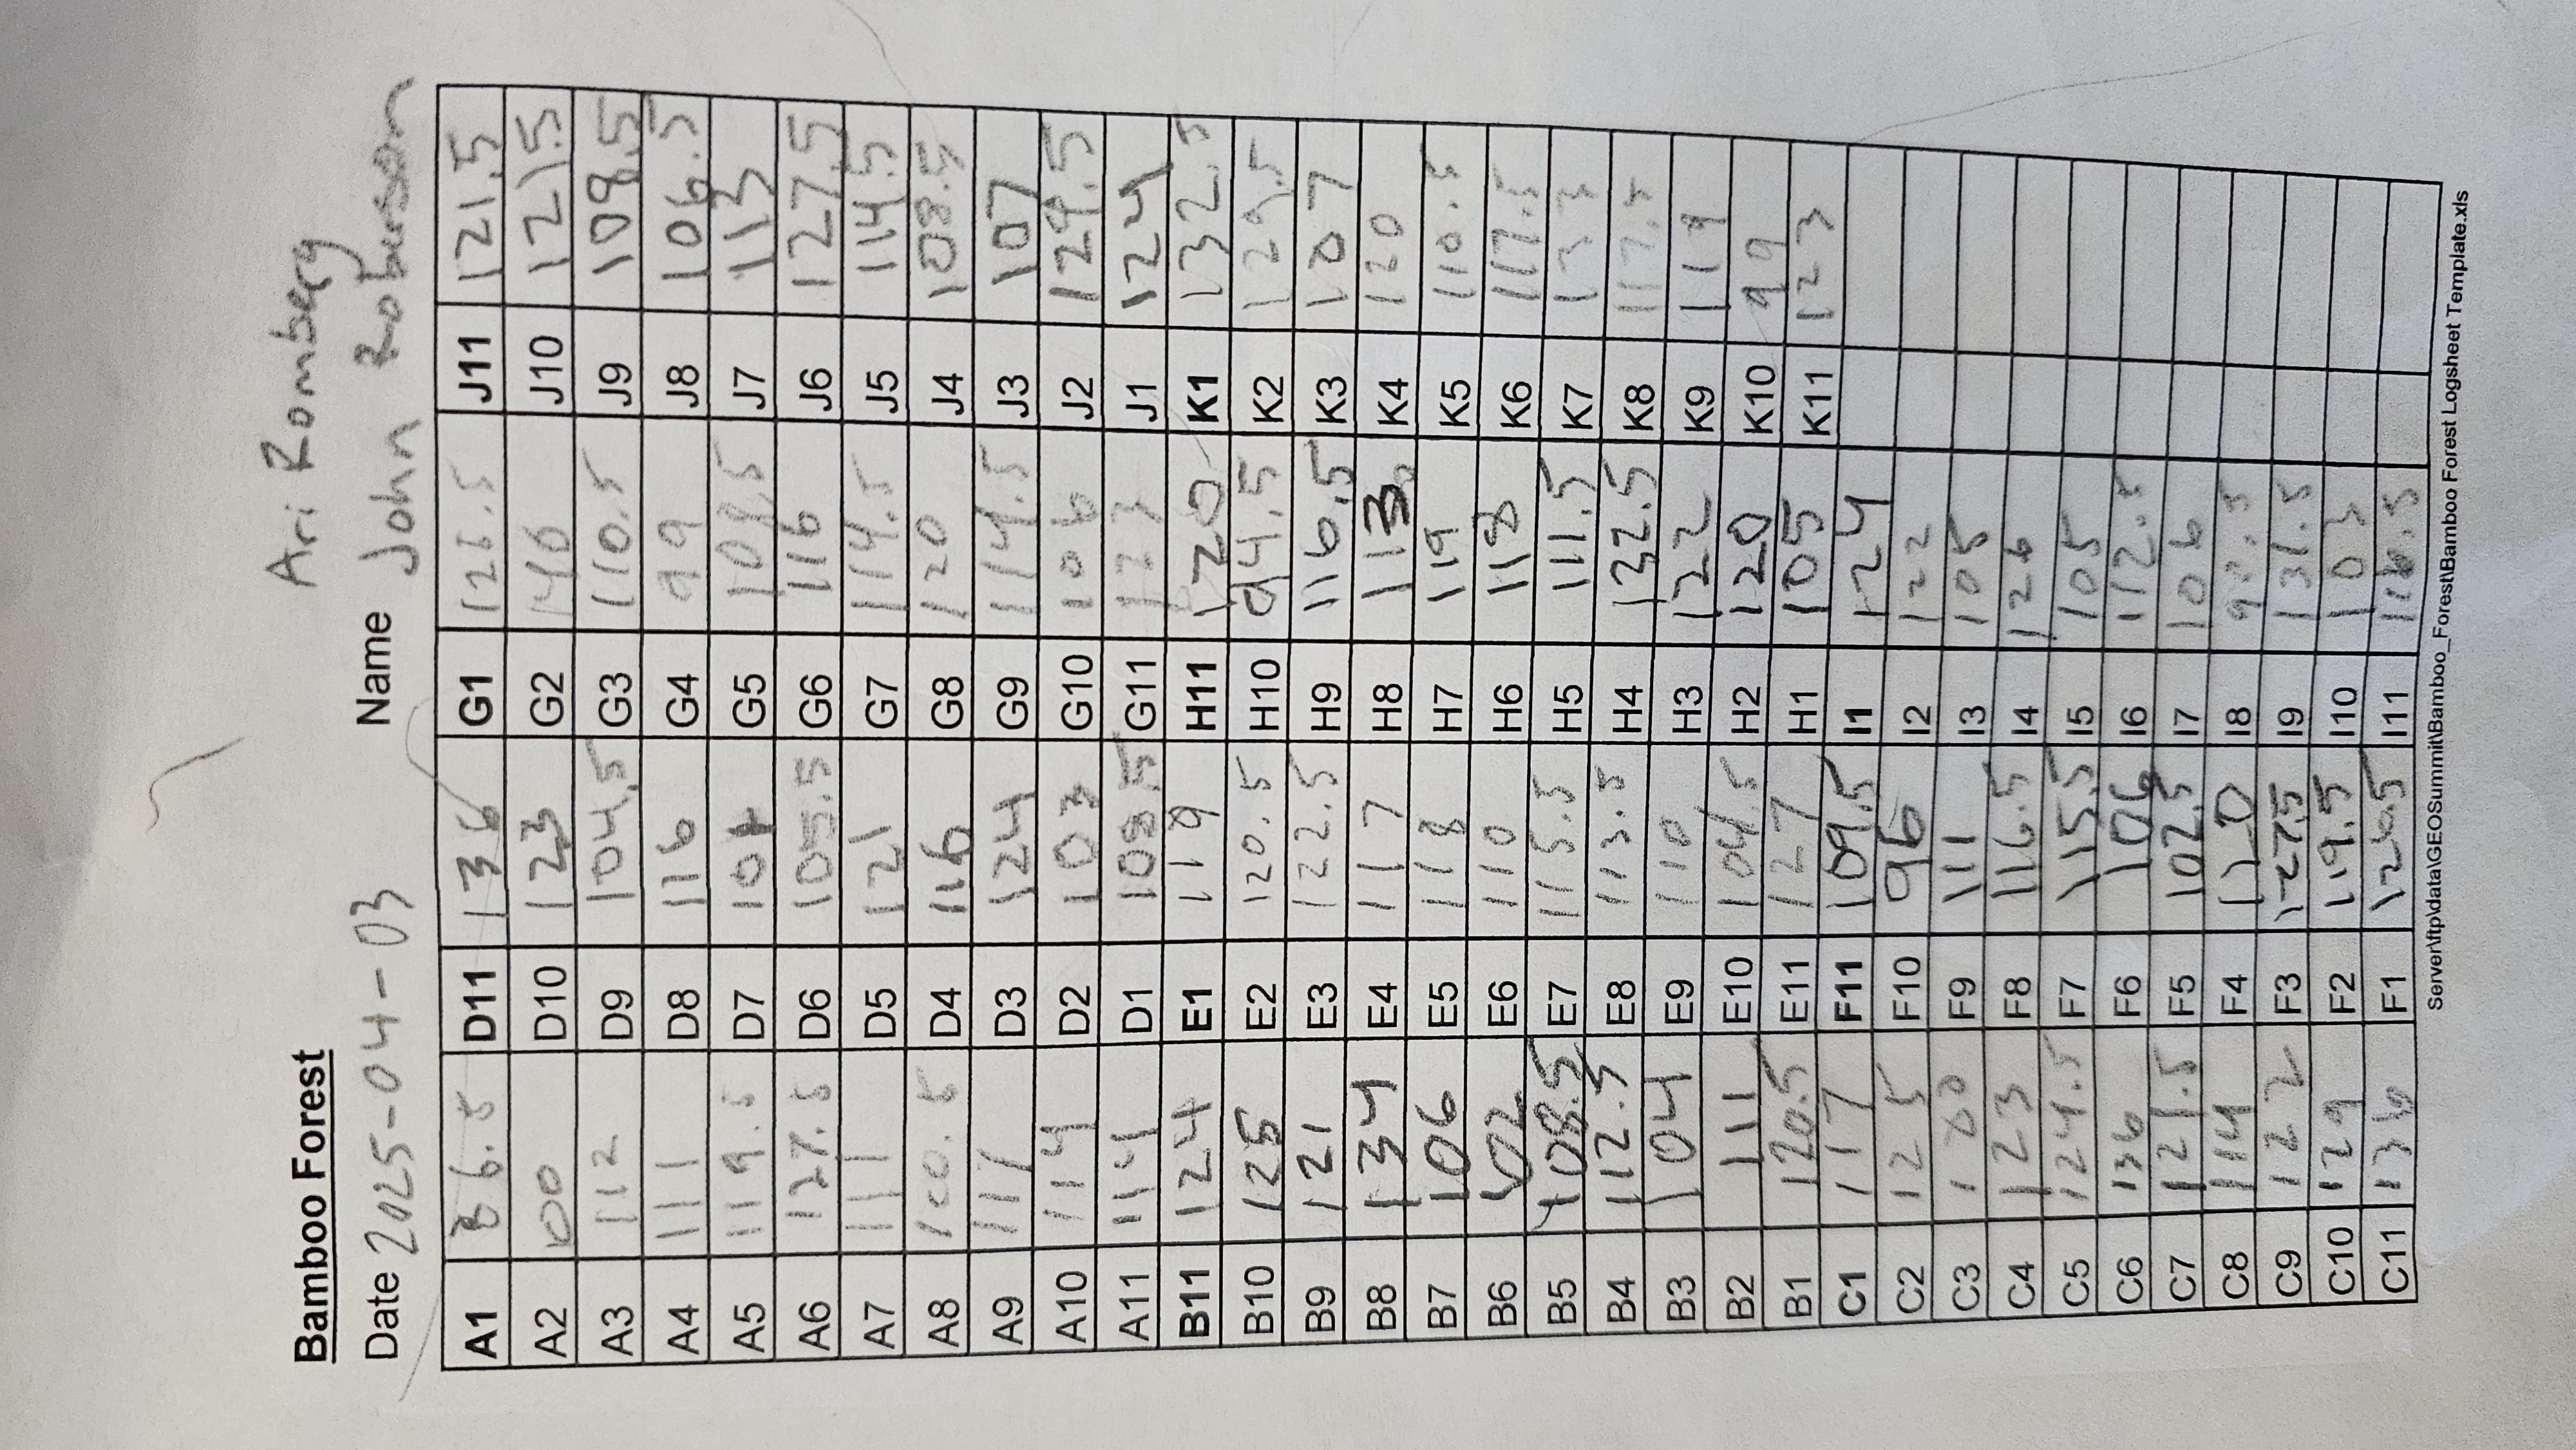 Bamboo Forest
Ari Romberg
Date 2025-04-03 Name John Roberson
A1 86.5 D11 136 G1 126.5 J11 121.5
A2 100 D10 123 G2 J10 121.5
A3 112 D9 104.5 G3 110.5 J9 108.5
A4 111 D8 116 G4 99 J8 106.5
A5 119.5 D7 G5 J7 113
A6 127.5 D6 105.5 G6 116 J6 127.5
A7 111 D5 121 G7 114.5 J5 114.5
A8 100.5 D4 116 G8 120 J4
A9 117 D3 124 G9 114.5 J3 107
A10 114 D2 103 G10 106 J2 129.5
A11 114 D1 108.5 G11 J1 124
B11 124 E1 119 H11 120 K1 132.5
B10 125 E2 120.5 H10 94.5 K2 129.5
B9 121 E3 122.5 H9 116.5 K3 107
B8 134 E4 117 H8 113 K4 120
B7 106 E5 118 H7 119 K5 110.5
B6 102 E6 110 H6 118 K6 117.5
B5 108.5 E7 115.5 H5 111.5 K7
B4 112.5 E8 113.5 H4 132.5 K8 117.5
B3 104 E9 110 H3 122 K9 119
B2 111 E10 104.5 H2 120 K10 99
B1 120.5 E11 127 H1 105 K11 123
C1 117 F11 109.5 I1 124
C2 125 F10 96 I2 122
C3 100 F9 111 I3 105
C4 123 F8 116.5 I4 126
C5 124.5 F7 115.5 I5 105
C6 136 F6 106 I6 112.5
C7 121.5 F5 102.5 I7 106
C8 114 F4 120 I8
C9 122 F3 127.5 I9 131.5
C10 129 F2 119.5 I10 103
C11 136 F1 120.5 I11
Server\ftp\data\GEOSummit\Bamboo_Forest\Bamboo Forest Logsheet Template.xls